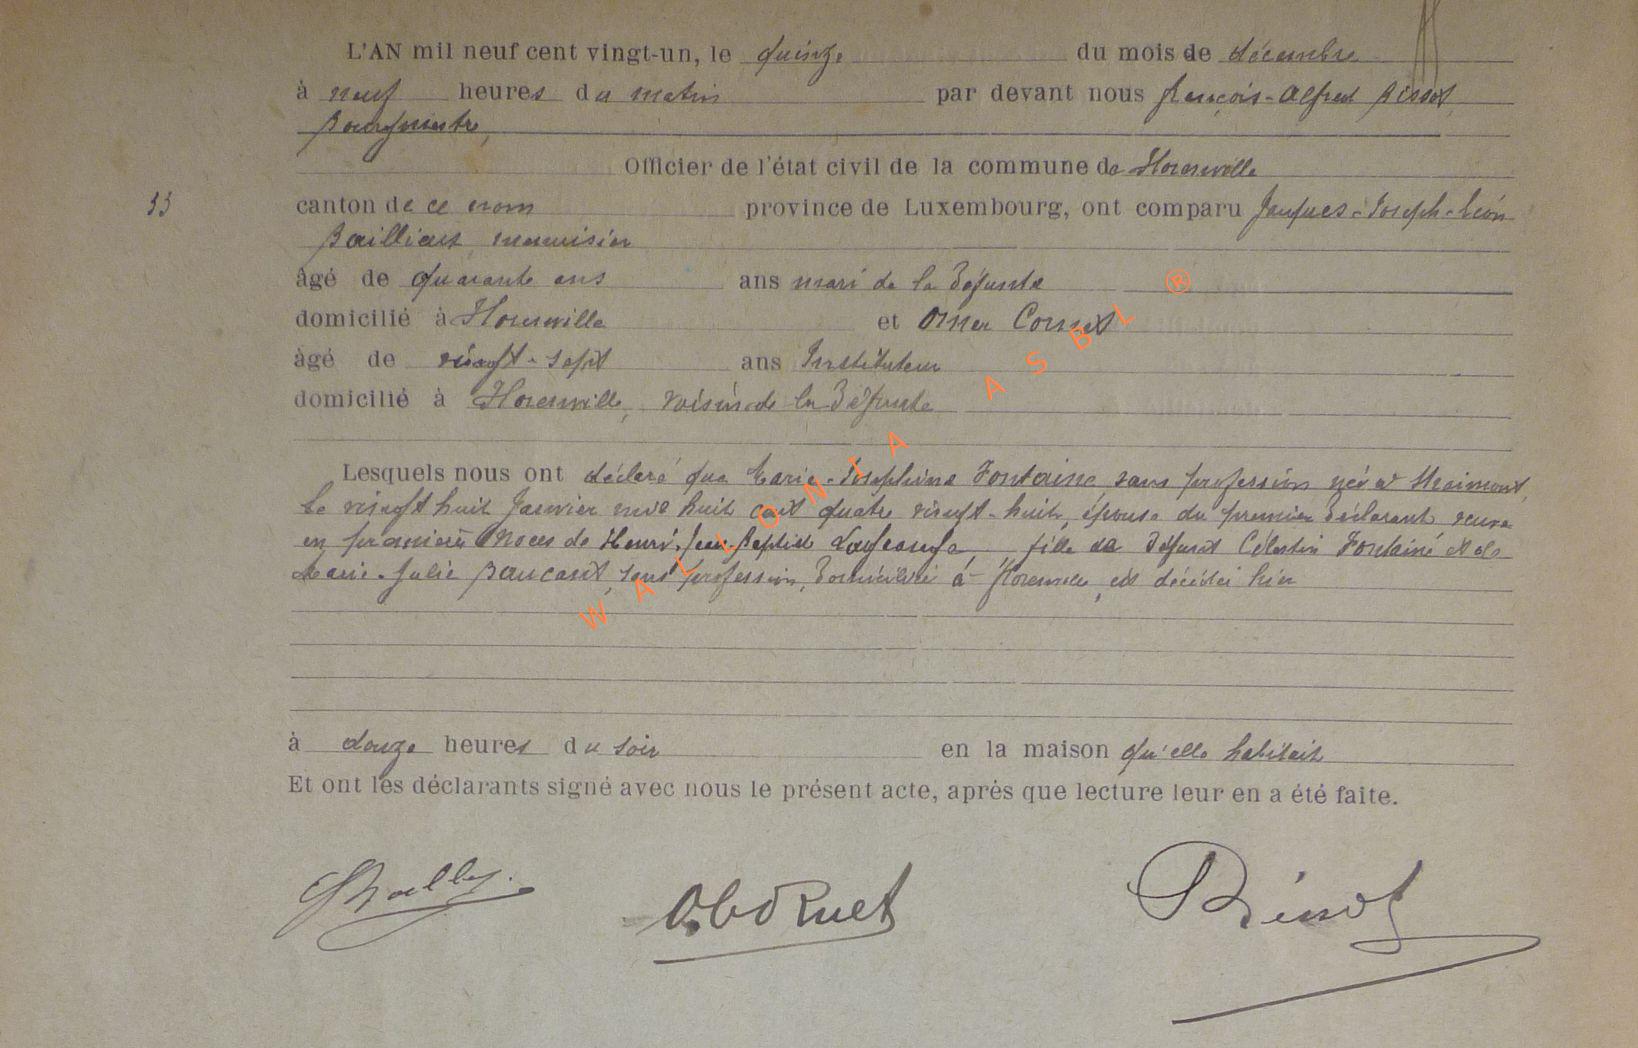 L'AN mil neuf cent vingt-un, le quinze du mois de décembre
à neuf heures du matin par devant nous françois-Alfred Bissot
Bourgmestre,
Officier de l'état civil de la commune de Florenville
33 canton de ce nom province de Luxembourg, ont comparu Jacques-Joseph-Léon
menuisier
âgé de quarante ans ans mari de la défunte
domicilié à Florenville et Omer Cornet
âgé de vingt-sept ans Instituteur
domicilié à Florenville, voisin de la défunte
Lesquels nous ont déclaré que Marie-Joséphine Fontaine sans profession née à
le vingt huit Janvier mil huit cent quatre vingt-huit, épouse du premier déclarant veuve
en premières Noces de Henri-Jean-Baptiste fille de défunt Célestin Fontaine et de
Marie-Julie sans profession, domiciliée à Florenville, est décédée hier
à douze heures du soir en la maison qu'elle habitait
Et ont les déclarants signé avec nous le présent acte, après que lecture leur en a été faite.
O. Cornet Bissot
WALLONIA ASBL ®